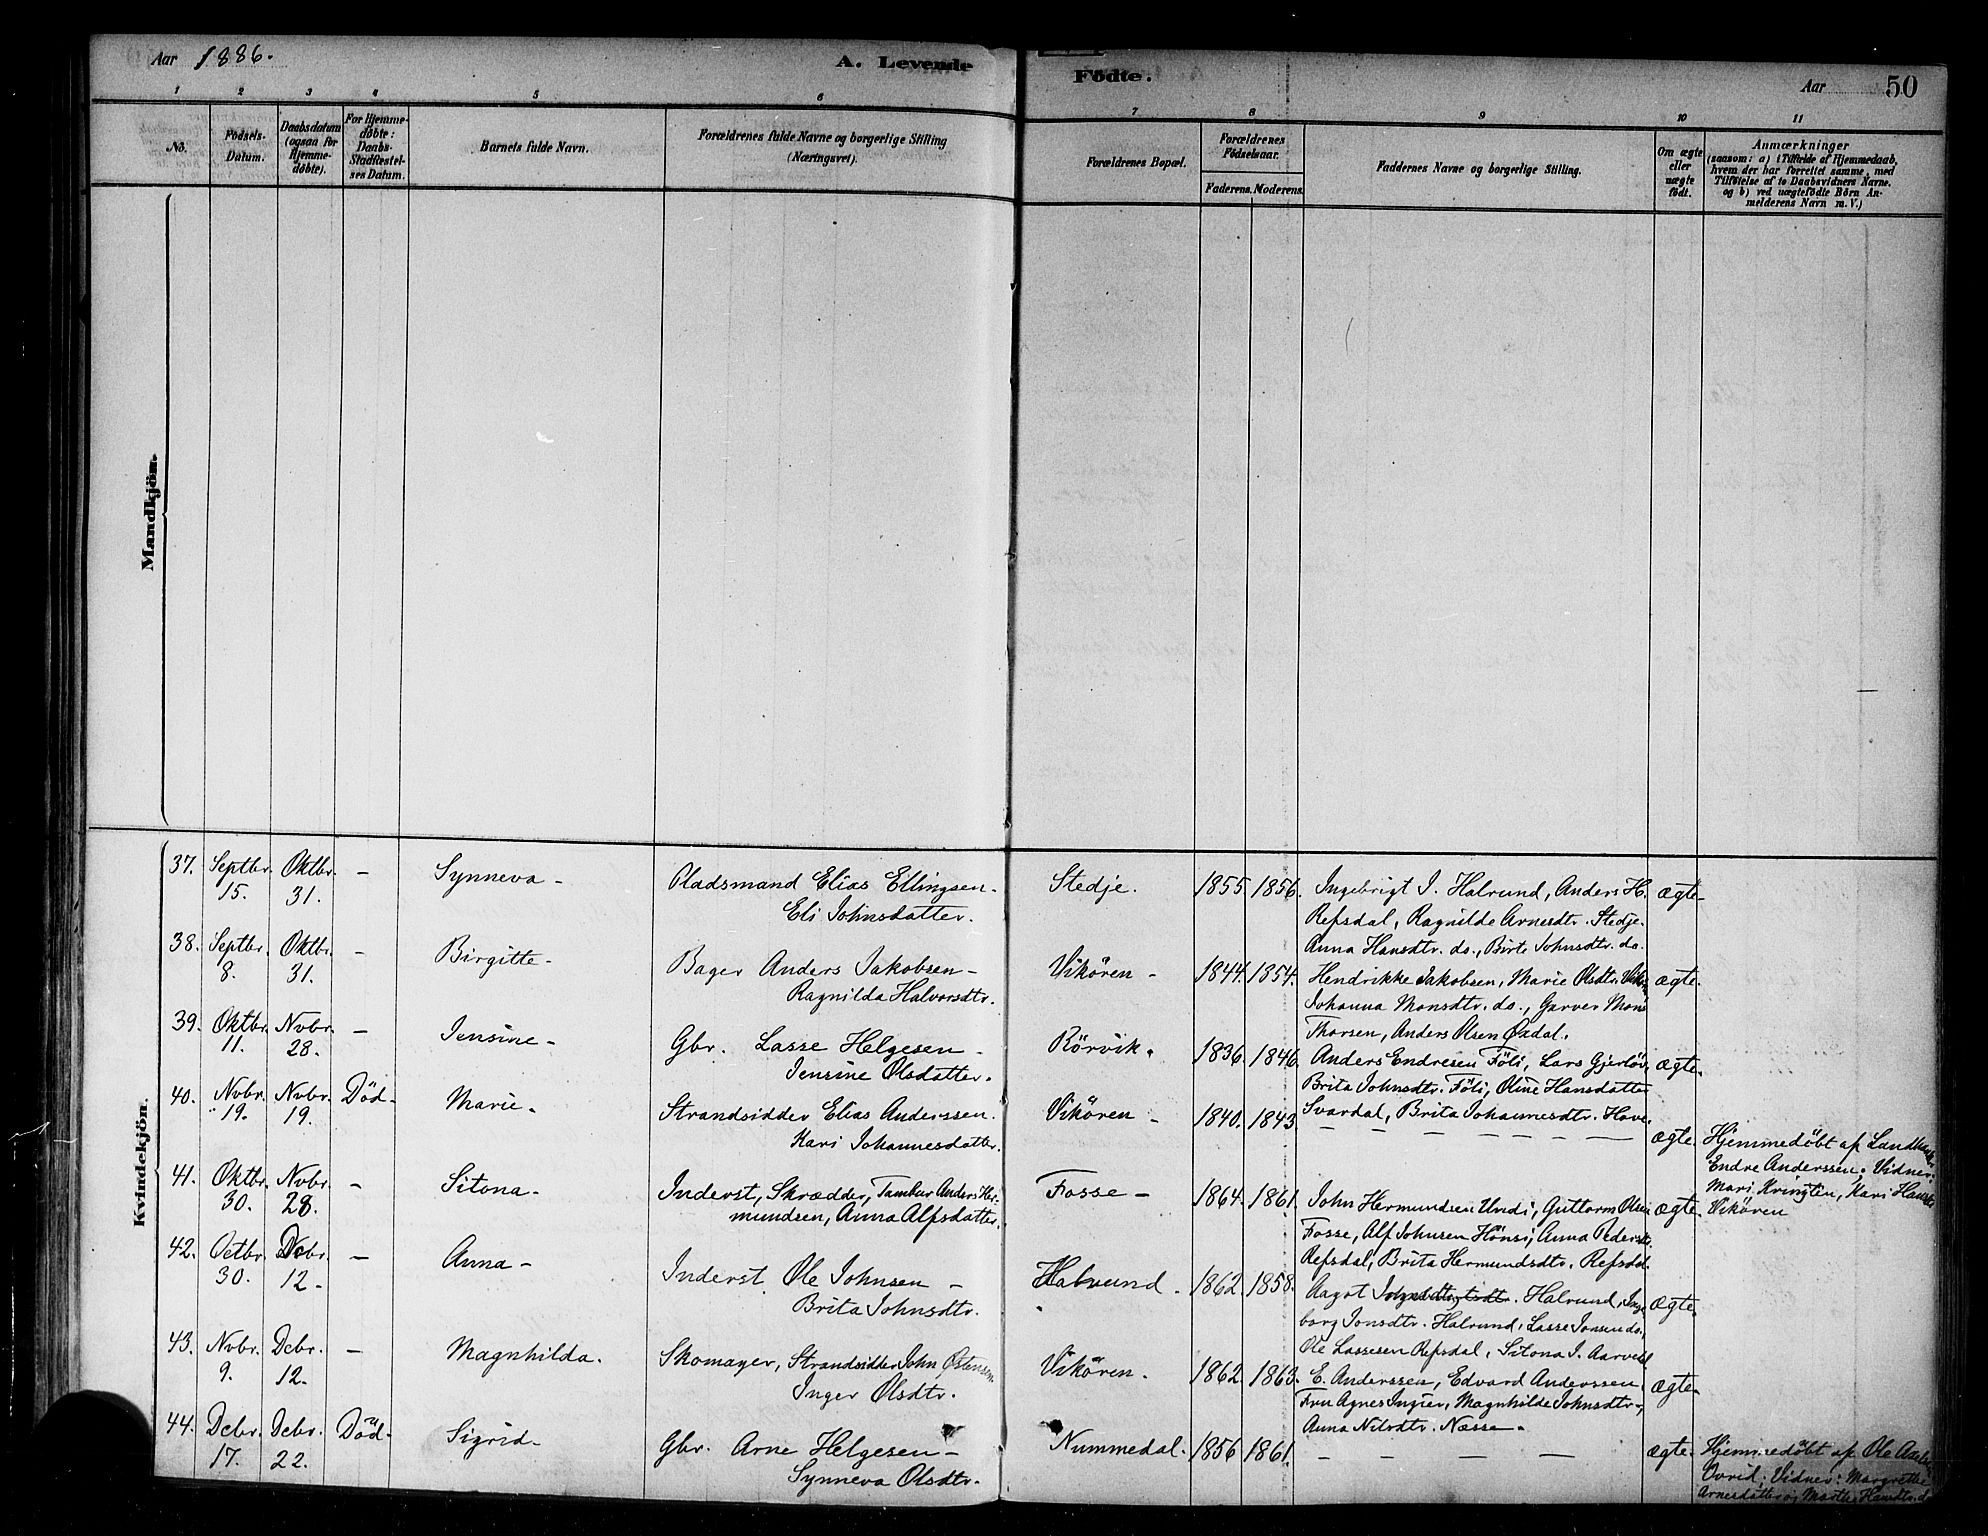 Aar 1886. A. Levende Födte. Aar 50
1 2 3 4 5 6 7 8 9 10 11
No. Födsels-Datum. Daabsdatum (ogsaa for Hjemmedöbte). For Hjemmedöbte: Daabs-Stadfæstelses Datum. Barnets fulde Navn. Forældrenes fulde Navne og borgerlige Stilling (Næringsvei). Forældrenes Bopæl. Forældrenes Födselsaar. Faderens. Moderens. Faddernes Navne og borgerlige Stilling. Om ægte eller uægte födt. Anmærkninger (saasom: a) i Tilfælde af Hjemmedaab, hvem der har forrettet samme, med Tilföielse af to Daabsvidners Navne. og b) ved uægtefödte Börn Anmelderens Navn m. V.)
Mandkjön.
Kvindekjön.
37. Septbr. 15. Oktbr. 31. – Synneva – Pladsmand Elias Ellingsen. Stedje. 1855. 1856. Ingebrigt I. Halrund, Anders H. ægte
Eli Johnsdatter. Refsdal, Ragnilde Arnesdtr. Stedje.
Anna Hansdtr. do., Birte Johnsdtr. do.
38. Septbr. 8. Oktbr. 31. – Birgitte – Bager Anders Jakobsen – Vikören – 1844. 1854. Hendrikke Jakobsen, Marie Olsdtr. ægte.
Ragnilda Halvorsdtr. Johanna Monsdtr. do., Garver Mons
Thorsen, Anders Olsen Öxdal.
39. Oktbr. 11. Nvbr. 28. – Jensine – Gbr. Lasse Helgesen – Rörvik. 1836. 1846. Anders Endresen Föli, Lars ægte.
Jensine Olsdatter. Brita Johnsdtr. Föli, Oline Hansdatter
Svardal, Brita Johannesdtr. Hove.
40. Nvbr. 19. Nvbr. 19. Död – Marie – Strandsidder Elias Anderssen. Vikören – 1840. 1843. – – – – – – ægte. Hjemmedöbt af
Kari Johannesdatter. Endre Anderssen. Vidner:
Mari Kvingten, Kari
Vikören
41. Oktbr. 30. Nvbr. 28. – Sitona – Inderst, Skrædder, Tambur Anders Her- Fosse – 1864. 1861. John Hermundsen Undi, Guttorm Olsen ægte.
mundsen, Anna Alfsdatter. Fosse, Alf Johnsen Hönsi, Anna Pedersdtr.
Refsdal, Brita Hermundsdtr. Refsdal.
42. Octbr. 30. Dcbr. 12. – Anna – Inderst Ole Johnsen – Halrund. 1862. 1858. Aagot Halrund, Inge- ægte.
Brita Johnsdtr. borg Jonsdtr. Halrund, Lasse Jonsen do.,
Ole Lassesen Refsdal, Sitona J.
43. Nvbr. 9. Dcbr. 12. – Magnhilda. Skomager, Strandsidder John Östensen Vikören. 1862. 1863. E. Anderssen, Edvard Anderssen, ægte.
Inger Olsdtr. Fru Agnes Ingier, Magnhilde Johnsdtr.,
Anna Nilsdtr. Næsse.
44. Dcbr. 17. Dcbr. 22. Död – Sigrid – Gbr. Arne Helgesen – Nummedal. 1856. 1861. – – – – ægte. Hjemmedöbt af Ole
Synneva Olsdtr. Ovrid; Vidner: Margrethe
Arnesdatter og Marthe Hansdtr. do